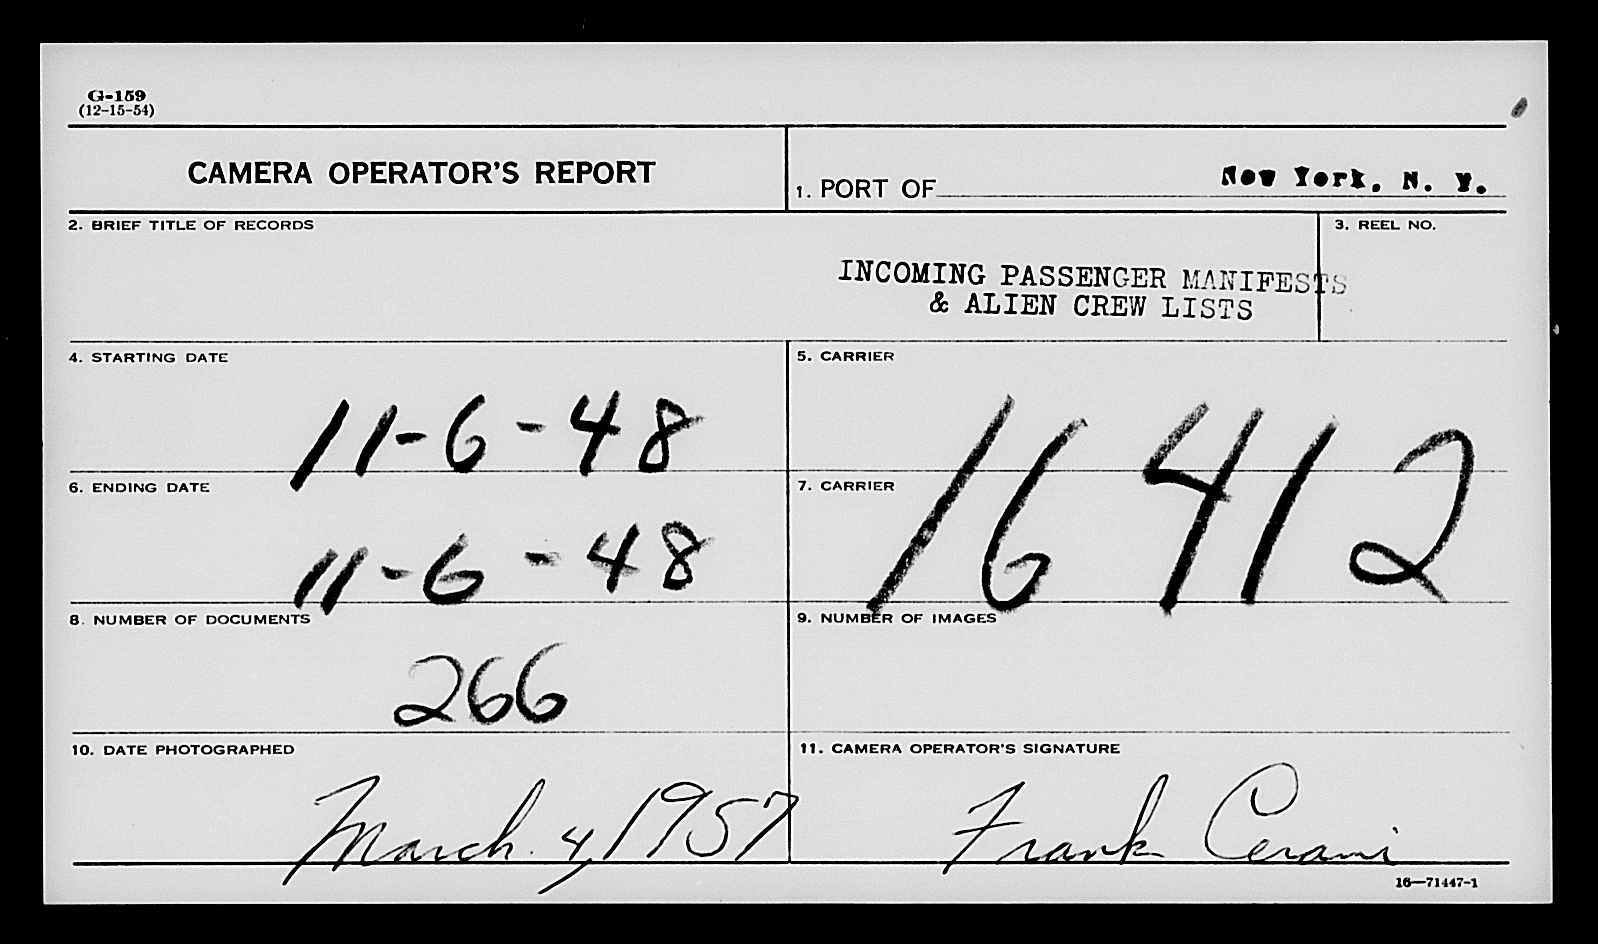 G-159
(12-15-54)
CAMERA OPERATOR'S REPORT
1. PORT OF New York, N. Y.
2. BRIEF TITLE OF RECORDS
INCOMING PASSENGER MANIFESTS
& ALIEN CREW LISTS
3. REEL NO.
4. STARTING DATE
11-6-48
5. CARRIER
6. ENDING DATE
11-6-48
7. CARRIER
16412
8. NUMBER OF DOCUMENTS
266
9. NUMBER OF IMAGES
10. DATE PHOTOGRAPHED
March 4, 1957
11. CAMERA OPERATOR'S SIGNATURE
Frank Cerami
16—71447-1